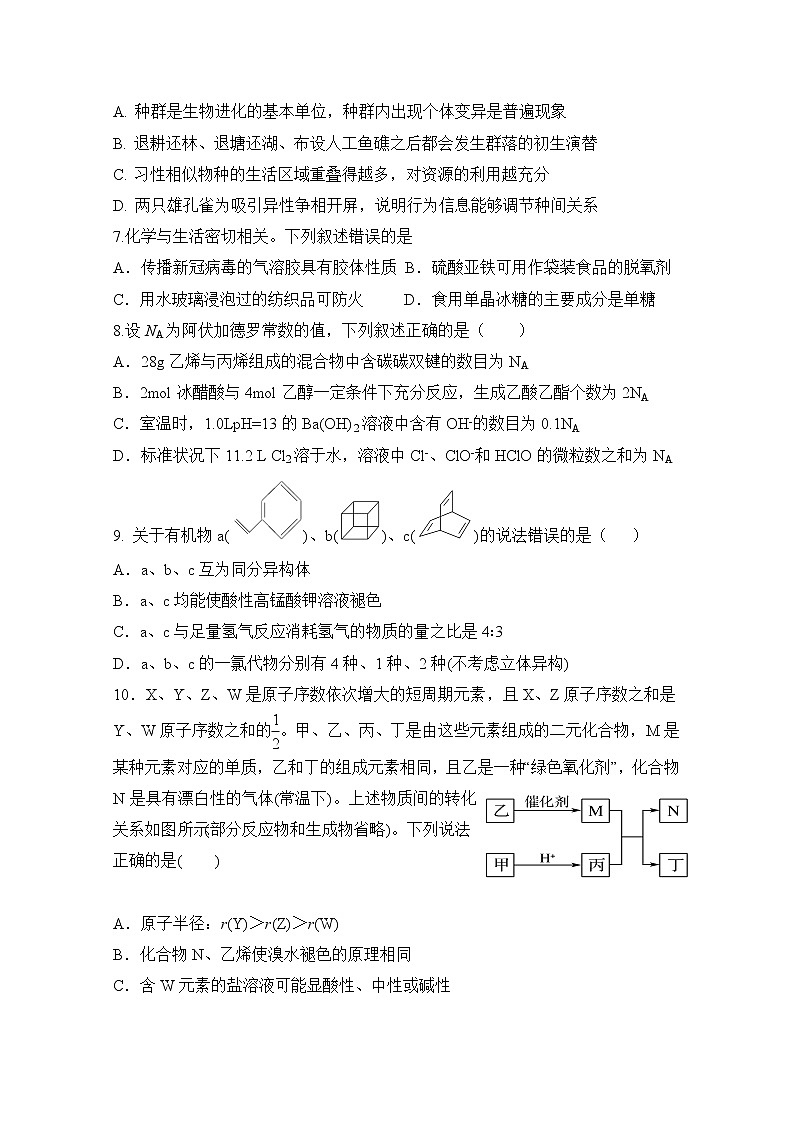 A. 种群是生物进化的基本单位，种群内出现个体变异是普遍现象
B. 退耕还林、退塘还湖、布设人工鱼礁之后都会发生群落的初生演替
C. 习性相似物种的生活区域重叠得越多，对资源的利用越充分
D. 两只雄孔雀为吸引异性争相开屏，说明行为信息能够调节种间关系
7.化学与生活密切相关。下列叙述错误的是
A．传播新冠病毒的气溶胶具有胶体性质 B．硫酸亚铁可用作袋装食品的脱氧剂
C．用水玻璃浸泡过的纺织品可防火 D．食用单晶冰糖的主要成分是单糖
8.设 NA 为阿伏加德罗常数的值，下列叙述正确的是（ ）
A．28g 乙烯与丙烯组成的混合物中含碳碳双键的数目为 NA
B．2mol 冰醋酸与 4mol 乙醇一定条件下充分反应，生成乙酸乙酯个数为 2NA
C．室温时，1.0LpH=13 的 Ba(OH)2 溶液中含有 OH-的数目为 0.1NA
D．标准状况下 11.2 L Cl2 溶于水，溶液中 Cl-、ClO-和 HClO 的微粒数之和为 NA
9. 关于有机物 a( )、b( )、c( )的说法错误的是（ ）
A．a、b、c 互为同分异构体
B．a、c 均能使酸性高锰酸钾溶液褪色
C．a、c 与足量氢气反应消耗氢气的物质的量之比是 4∶3
D．a、b、c 的一氯代物分别有 4 种、1 种、2 种(不考虑立体异构)
10．X、Y、Z、W 是原子序数依次增大的短周期元素，且 X、Z 原子序数之和是
Y、W 原子序数之和的1/2。甲、乙、丙、丁是由这些元素组成的二元化合物，M 是
某种元素对应的单质，乙和丁的组成元素相同，且乙是一种“绿色氧化剂”，化合物
N 是具有漂白性的气体(常温下)。上述物质间的转化
关系如图所示(部分反应物和生成物省略)。下列说法
正确的是( )
乙 催化剂 M N
甲 H+ 丙 丁
A．原子半径：r(Y)＞r(Z)＞r(W)
B．化合物 N、乙烯使溴水褪色的原理相同
C．含 W 元素的盐溶液可能显酸性、中性或碱性